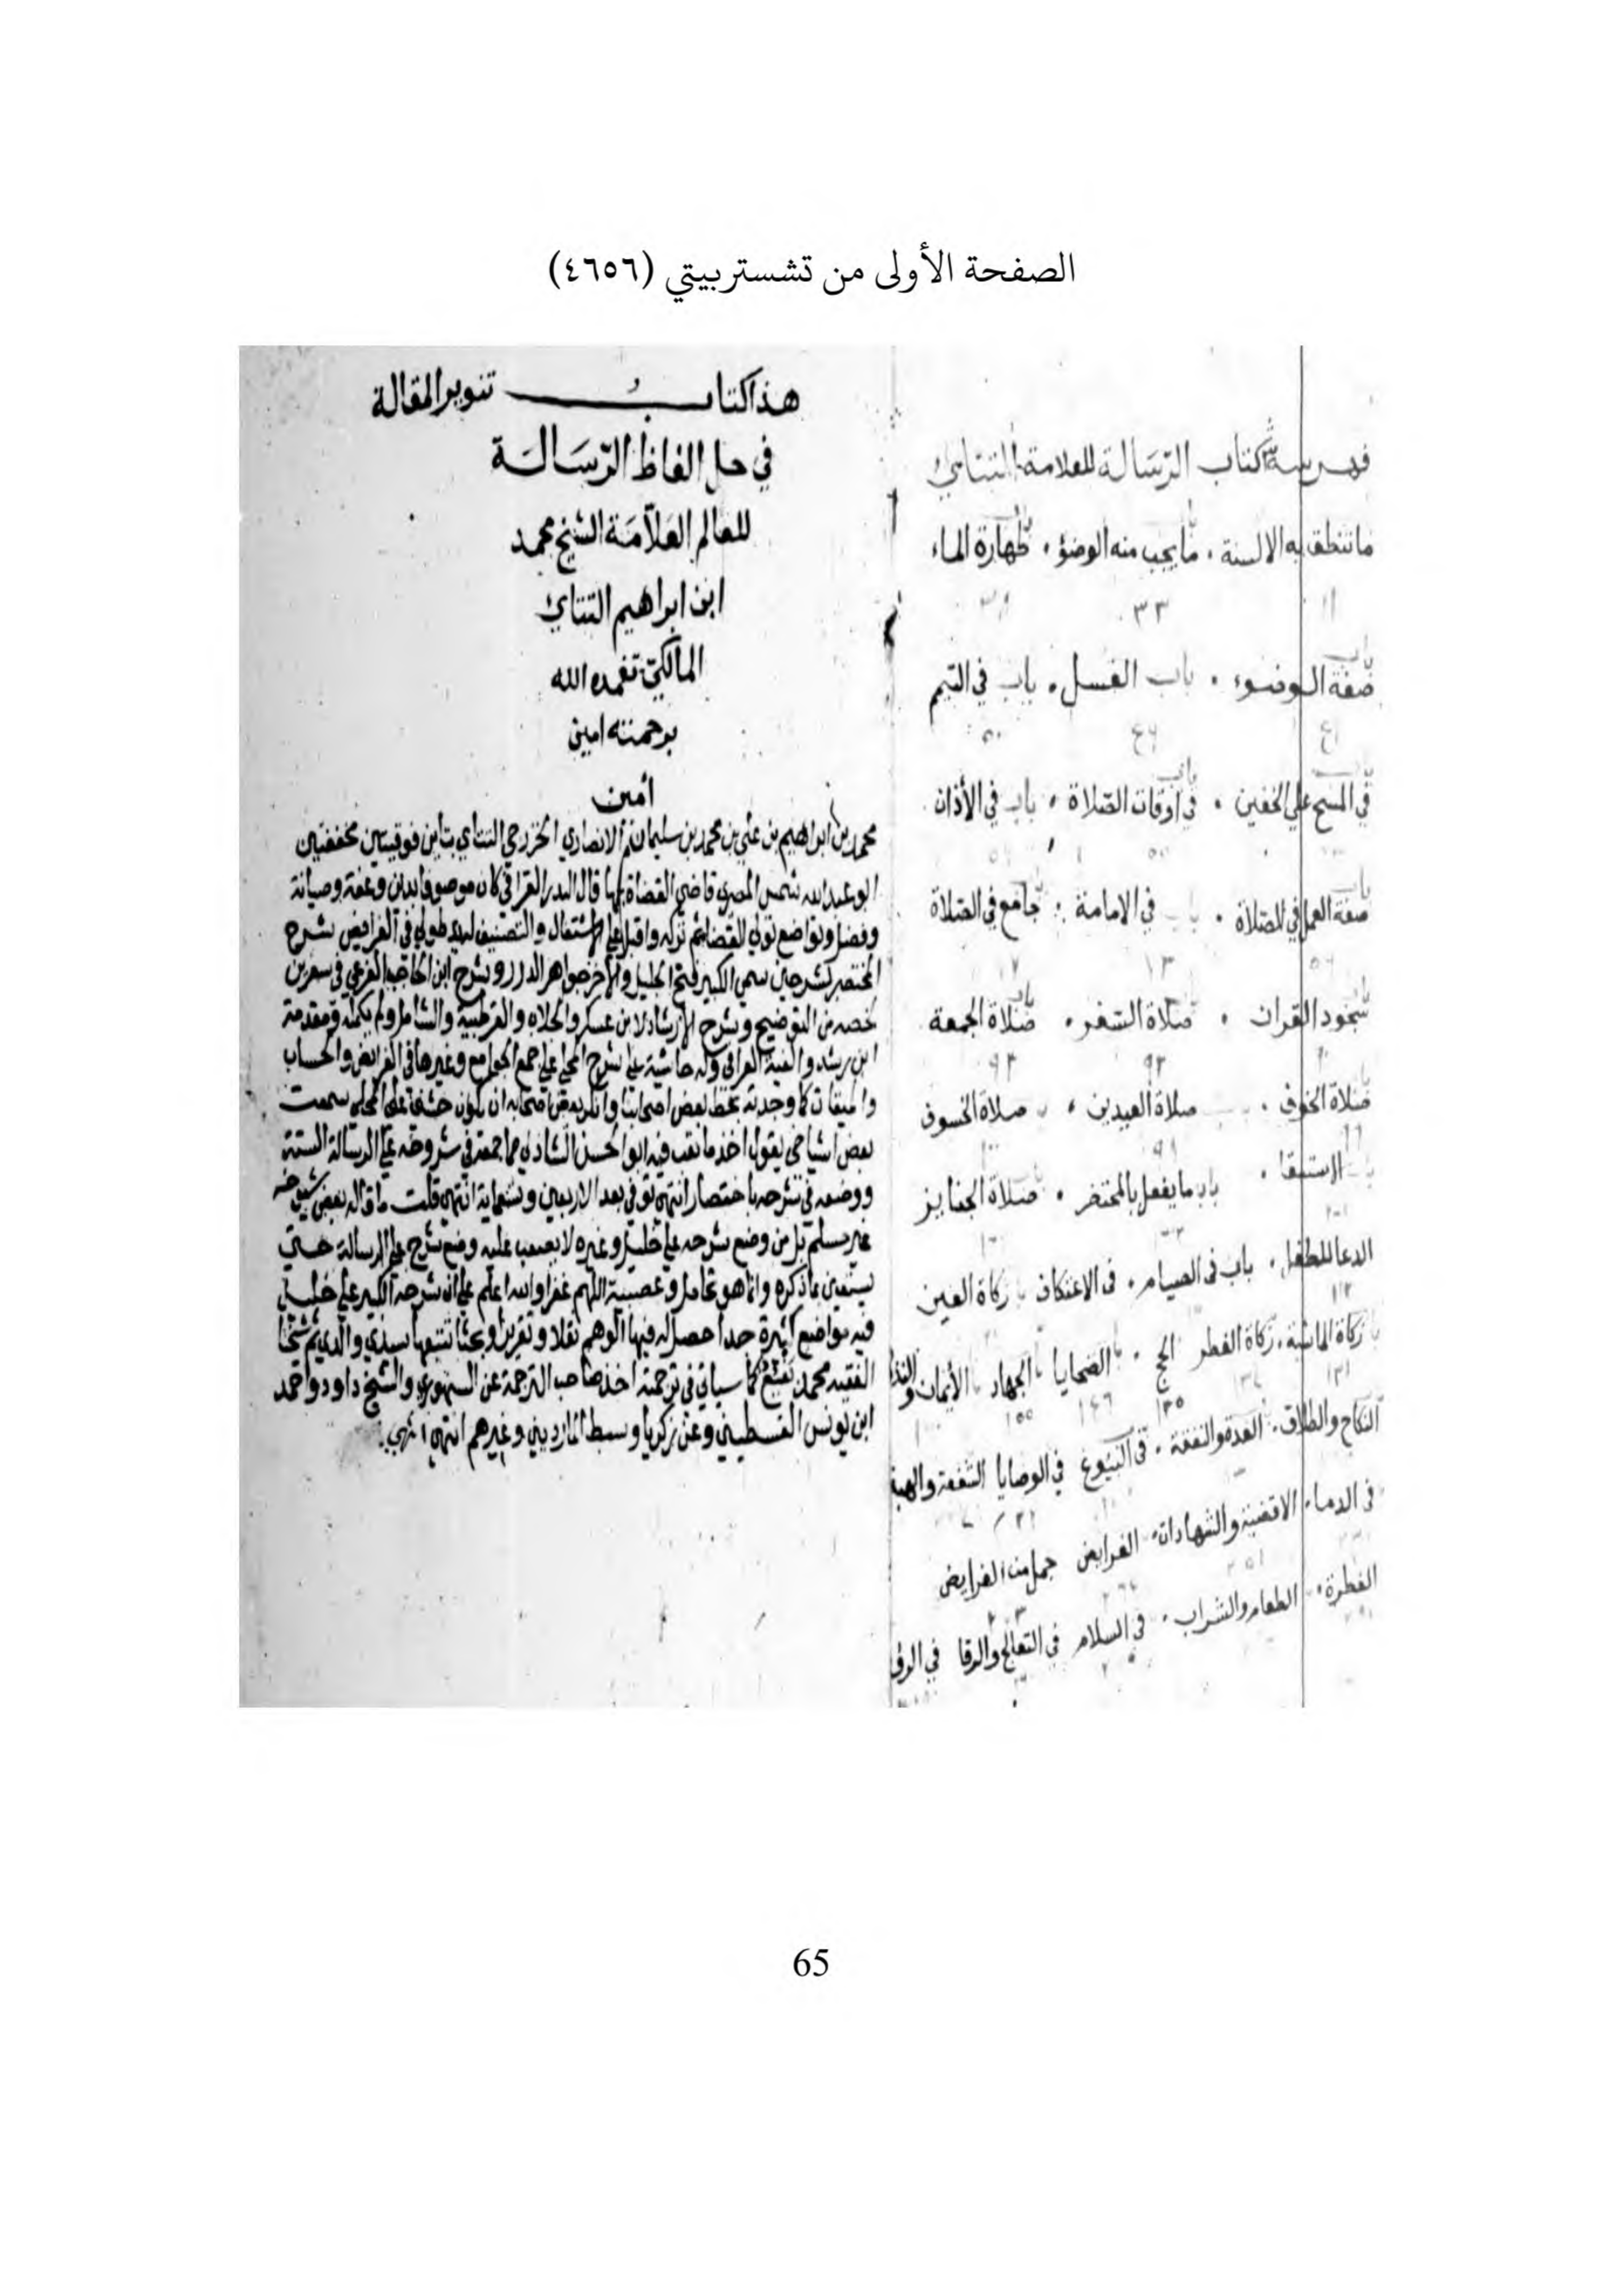 الصفحة الأولى من تشستربيتي (٤٦٥٦)
فهرسة كتاب الرسالة للعلامة التتائي
ما تنطق به الالسنة ، ما يجب منه الوضؤ ، طهارة الماء
١١ ٣٣
باب صفة الوضوء ، باب الغسل ، باب في التيمم
٤١ ٤٦ ٥٠
في المسح علي الخفين ، في اوقات الصلاة ، باب في الأذان
صفة العمل في الصلاة ، في الامامة ، جامع في الصلاة
سجود القران ، صلاة السفر ، صلاة الجمعة
٩٢
صلاة الخوف ، صلاة العيدين ، صلاة الخسوف
الاستسقا ، باب ما يفعل بالمحتضر ، صلاة الجنايز
الدعا للطفل ، باب في الصيام ، في الاعتكاف زكاة العين
زكاة الماشية ، زكاة الفطر الحج ، الضحايا الجهاد الأيمان والنذ
النكاح والطلاق ، العدة والنفقة ، في البيوع في الوصايا الشفعة والهبة
في الدماء الاقضية والشهادات ، الفرايض جمل من الفرايض
الفطرة ، الطعام والشراب ، في السلام في التعالج والرقا في الرؤ
هذا كتاب تنوير المقالة
في حل الفاظ الرسالة
للعالم العلامة الشيخ محمد
ابن ابراهيم التتائي
المالكي تغمده الله
برحمته امين
أمين
محمد بن ابراهيم بن علي بن محمد بن سليمان الانصاري الخزرجي التتاي بتاين فوقيتين مخففتين
ابو عبد الله شمس المصري قاضي القضاة بها قال البدر القرافي كان موصوفا بدين وعفة وصيانة
وفضل وتواضع تولي القضا ثم تركه واقبل علي الاشتغال والتصنيف له يد طولي في الفرايض شرح
المختصر بشرحين سمي الكبير فتح الجليل والآخر جواهر الدرر وشرح ابن الحاجب الفرعي في سفرين
لخصه من التوضيح وشرح الارشاد لابن عسكر والجلاب والقرطبية والشامل ولم يكمله ومقدمة
ابن رشد والفية العراقي وله حاشية علي شرح المحلي علي جمع الجوامع وغيرها في الفرايض والحساب
والميقات كما وجدته بخط بعض اصحابنا وانكر بعض اصحابه ان يكون حشي علي المحلي سمعت
بعض اشياخي يقول اخذ ما تعب فيه ابو الحسن الشاذلي مما جمعه في شروحه علي الرسالة الستة
ووضعه في شرحه باختصار انتهي توفي بعد الاربعين وتسعماية انتهي قلت ما قاله بعض شيوخه
غير مسلم بل من وضع شرحه علي خليل وغيره لا يصعب عليه وضع شرح علي الرسالة حتي
يستعين بما ذكره وانما هو تحامل وعصبية اللهم غفرا والله اعلم علي ان شرحه الكبير علي خليل
فيه مواضع كثيرة جدا حصل له فيها الوهم نقلا وتقريرا وبحثا تتبعها سيدي والدي ثم شيخنا
الفقيه محمد كما سياتي في ترجمته اخذ صاحب الترجمة عن السنهوري والشيخ داود واحمد
ابن يونس القسطيني وعن زكريا وسبط المارديني وغيرهم انتهي
65